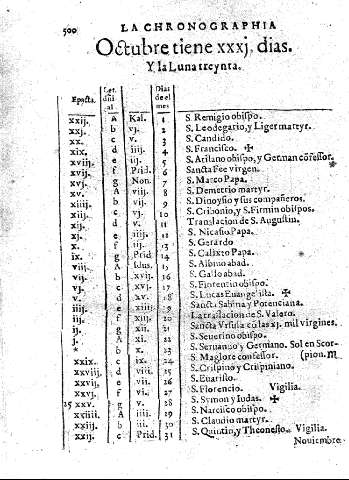 500 LA CHRONOGRAPHIA
Octubre tiene xxxj. dias.
Y la Luna treynta.
Epacta. Let. dñi al Dias de el mes
xxij. A Kal. 1 S. Remigio obispo.
xxj. b vj. 2 S. Leodegario, y Liger martyr.
xx. c v. 3 S. Candido.
xix. d iiij. 4 S. Francisco. ✠
xviij. e iij. 5 S. Atilano obispo, y German cõfessor.
xvij. f Prid. 6 Sancta Fee virgen.
xvj. g Non. 7 S. Marco Papa.
xv. A viij. 8 S. Demetrio martyr.
xiiij. b vij. 9 S. Dionysio y sus compañeros.
xiij. c vj. 10 S. Cribonio, y S. Firmin obispos.
xij. d v. 11 Translacion de S. Augustin.
xj. e iiij. 12 S. Nicasio Papa.
x. f iij. 13 S. Gerardo
ix. g Prid 14 S. Calixto Papa.
viij. A Idus. 15 S. Albino abad.
vij. b xvij. 16 S. Gallo abad.
vj. c xvj. 17 S. Florentio obispo.
v. d xv. 18 S. Lucas Euangelista. ✠
iiij. e xiiij. 19 Sancta Sabina y Potenciana.
iij. f xiij. 20 La traslacion de S. Valero.
ij. g xij. 21 Sancta Vrsula cõ las xj. mil virgines.
j. A xj. 22 S. Seuerino obispo.
* b x. 23 S. Seruando y Germano. Sol en Scor-
xxix. c ix. 24 S. Maglore confessor. (pion. m
xxviij. d viij. 25 S. Crispino y Crispiniano.
xxvij. e vij. 26 S. Euaristo.
xxvj. f vj. 27 S. Florencio. Vigilia.
25 xxv. g v. 28 S. Symon y Iudas. ✠
xxiiij. A iiij. 29 S. Narciso obispo.
xxiij. b iij. 30 S. Claudio martyr.
xxij. c Prid. 31 S. Quintin, y Theonesto. Vigilia.
Nouiembre